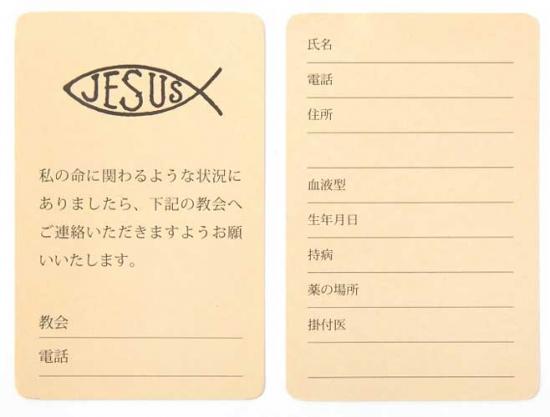 JESUS
私の命に関わるような状況に
ありましたら、下記の教会へ
ご連絡いただきますようお願
いいたします。
教会
電話
氏名
電話
住所
血液型
生年月日
持病
薬の場所
掛付医